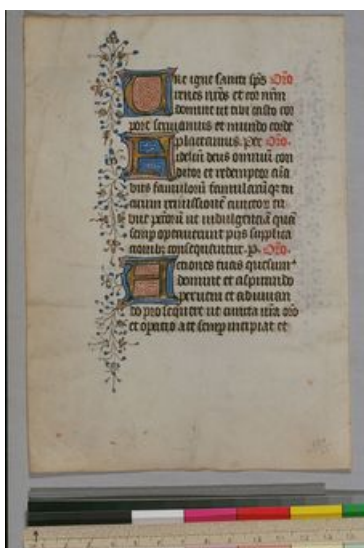 Ure igne sancti sps Oro
renes nros et cor nrm
domine ut tibi casto cor
pore seruiamus et mundo corde
placeamus. Per Oro.
Fidelium deus omnium con
ditor et redemptor aia
bus famulorū famularūq; tu
arum remissionē cunctor tri
bue pctorū ut indulgentiā quā
semp optauerunt pijs supplica
tionibz consequantur. p. Oro.
Actiones nras quesum9
domine et aspirando
preueni et adiuuan
do prosequere ut cuncta nra oro
et opatio a te semp incipiat et